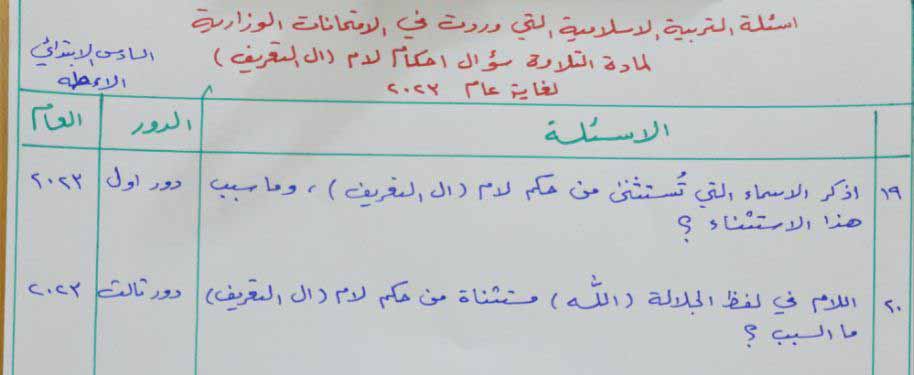 اسئلة التربية الاسلامية التي وردت في الامتحانات الوزارية
لمادة التلاوة سؤال احكام لام (ال التعريف)
لغاية عام ٢٠٢٣
السادس الابتدائي
الاسئلة
الدور
العام
١٩ اذكر الاسماء التي تُستثنى من حكم لام (ال التعريف)، وما سبب
هذا الاستثناء ؟
دور اول
٢٠٢٣
٢٠ اللام في لفظ الجلالة (الله) مستثناة من حكم لام (ال التعريف)
ما السبب ؟
دور ثالث
٢٠٢٣